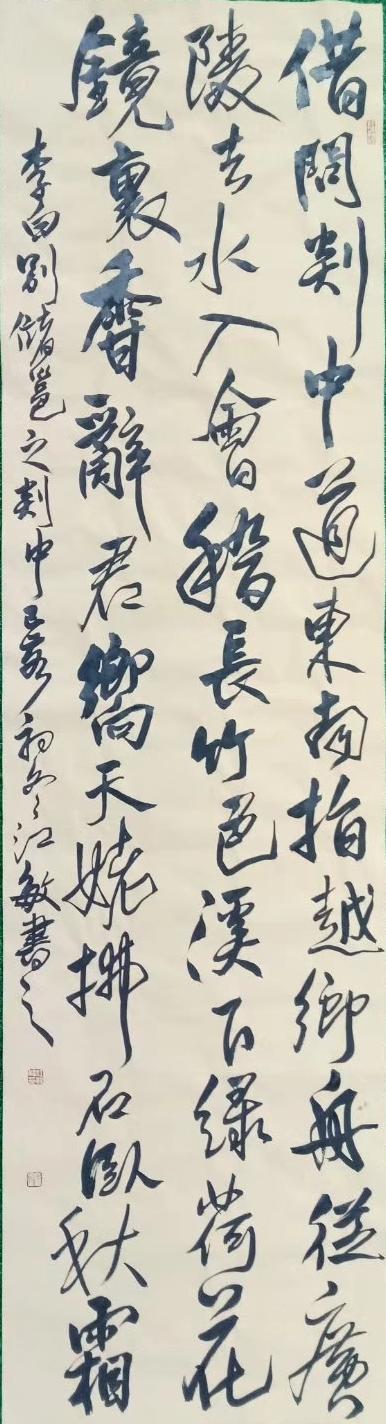 借問剡中道東南指越鄉舟從廣
陵去水入會稽長竹色溪下綠荷花
鏡裏香辭君嚮天姥拂石臥秋霜
李白別儲邕之剡中己亥初冬江敏書之